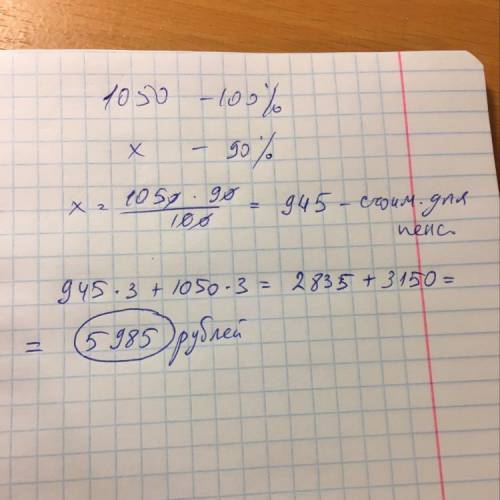 1050 - 100%
x - 90%
x = 1050 · 90 / 100 = 945 - стоим. для
пенс.
945 · 3 + 1050 · 3 = 2835 + 3150 =
= 5985 рублей